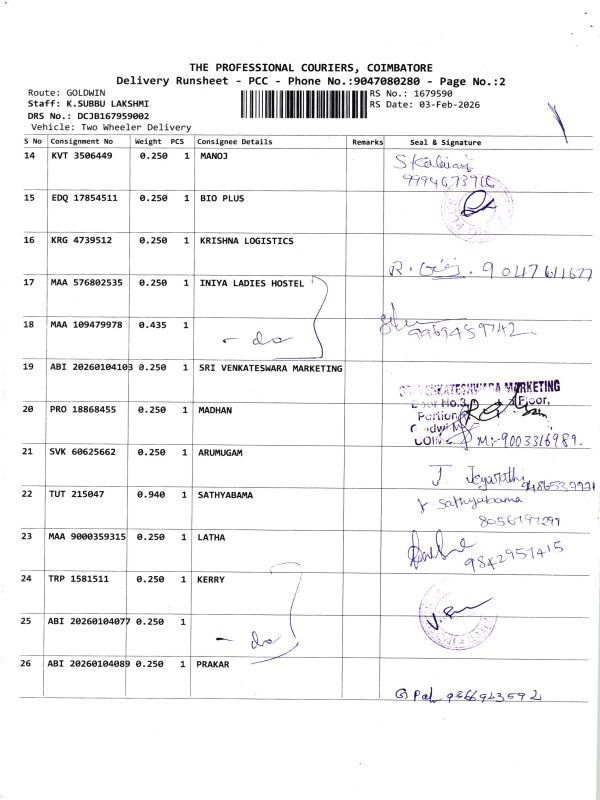 THE PROFESSIONAL COURIERS, COIMBATORE
Delivery Runsheet - PCC - Phone No.:9047080280 - Page No.:2
Route: GOLDWIN
Staff: K.SUBBU LAKSHMI
DRS No.: DCJB167959002
Vehicle: Two Wheeler Delivery
RS No.: 1679590
RS Date: 03-Feb-2026
S No Consignment No Weight PCS Consignee Details Remarks Seal & Signature
14 KVT 3506449 0.250 1 MANOJ
15 EDQ 17854511 0.250 1 BIO PLUS
16 KRG 4739512 0.250 1 KRISHNA LOGISTICS
R. 9047611677
17 MAA 576802535 0.250 1 INIYA LADIES HOSTEL
18 MAA 109479978 0.435 1
- do
19 ABI 20260104103 0.250 1 SRI VENKATESWARA MARKETING
VENKATESHWARA MARKETING
Floor,
20 PRO 18868455 0.250 1 MADHAN
Portion
M:-9003316989.
21 SVK 60625662 0.250 1 ARUMUGAM
J
22 TUT 215047 0.940 1 SATHYABAMA
Sathyabama
8056797299
23 MAA 9000359315 0.250 1 LATHA
9842957415
24 TRP 1581511 0.250 1 KERRY
25 ABI 20260104077 0.250 1
- do
26 ABI 20260104089 0.250 1 PRAKAR